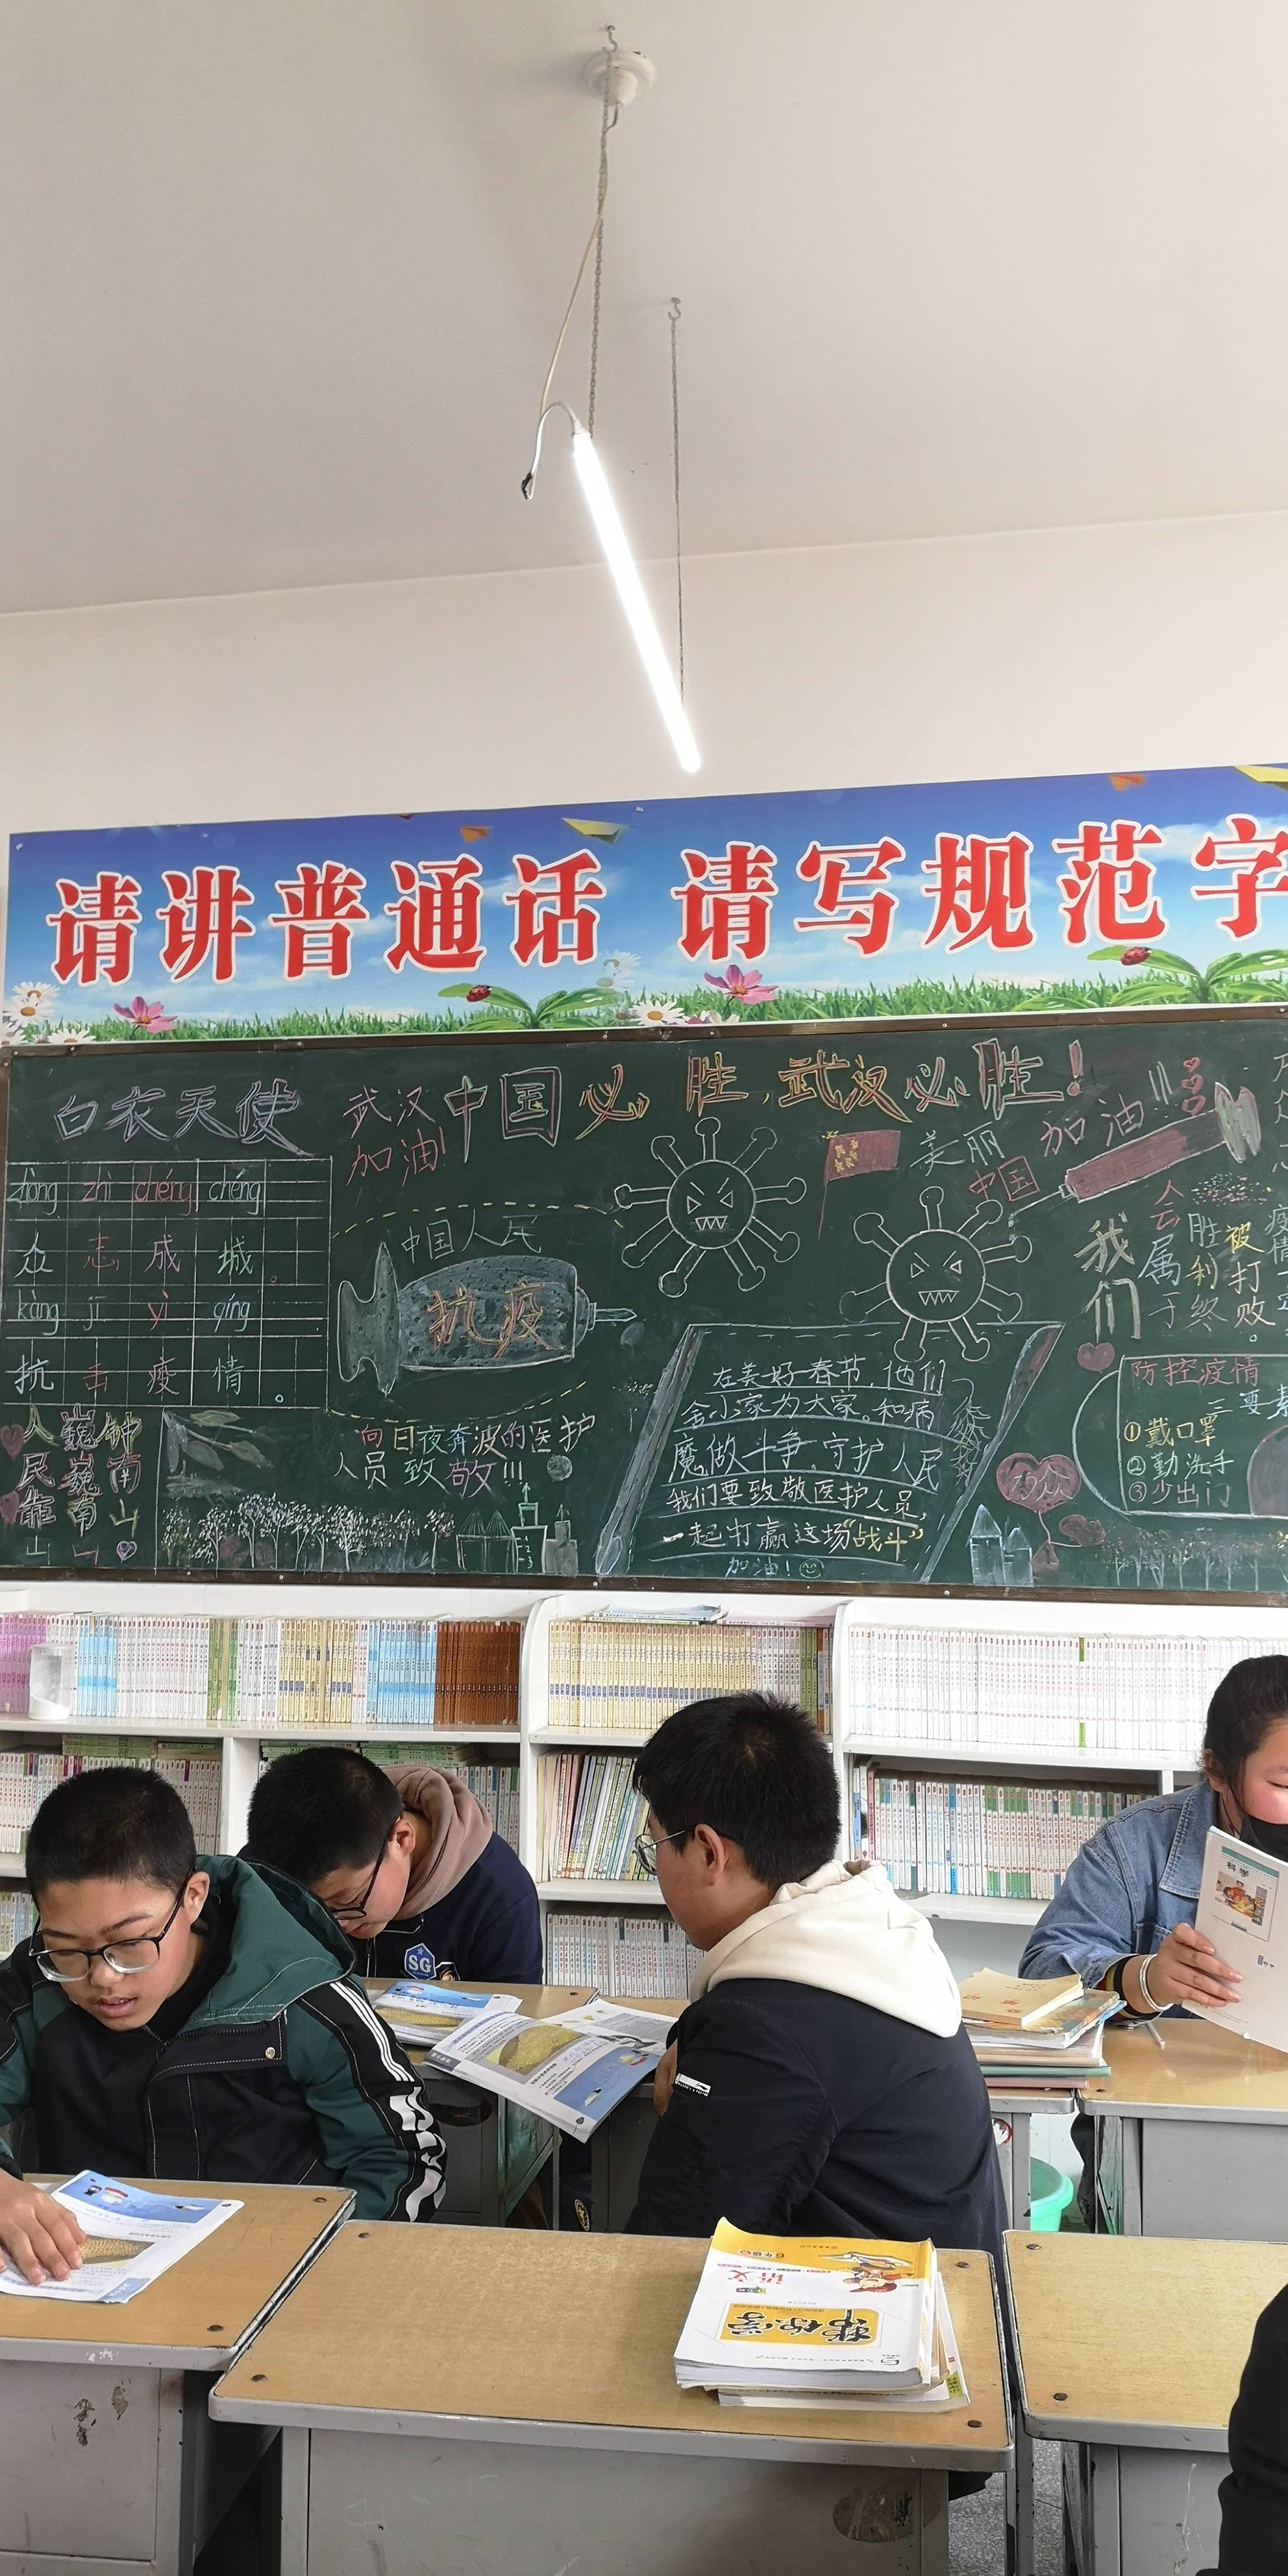 请讲普通话 请写规范字
白衣天使
武汉
加油!
中国必胜,武汉必胜!
美丽
中国
加油!!
zhòng zhì chéng chéng
众志成城。
kàng jī yì qíng
抗击疫情。
人民靠山
巍巍南山
钟南山
中国人民
抗疫
向日夜奔波的医护
人员致敬!!!
在美好春节,他们
舍小家为大家。和病
魔做斗争,守护人民
我们要致敬医护人员,
一起打赢这场“战斗”
加油!
我们
会属于
胜利终
被打败。
疫情
防控疫情
三要素
①戴口罩
②勤洗手
③少出门
万众
SG
科学
语文
帮你学